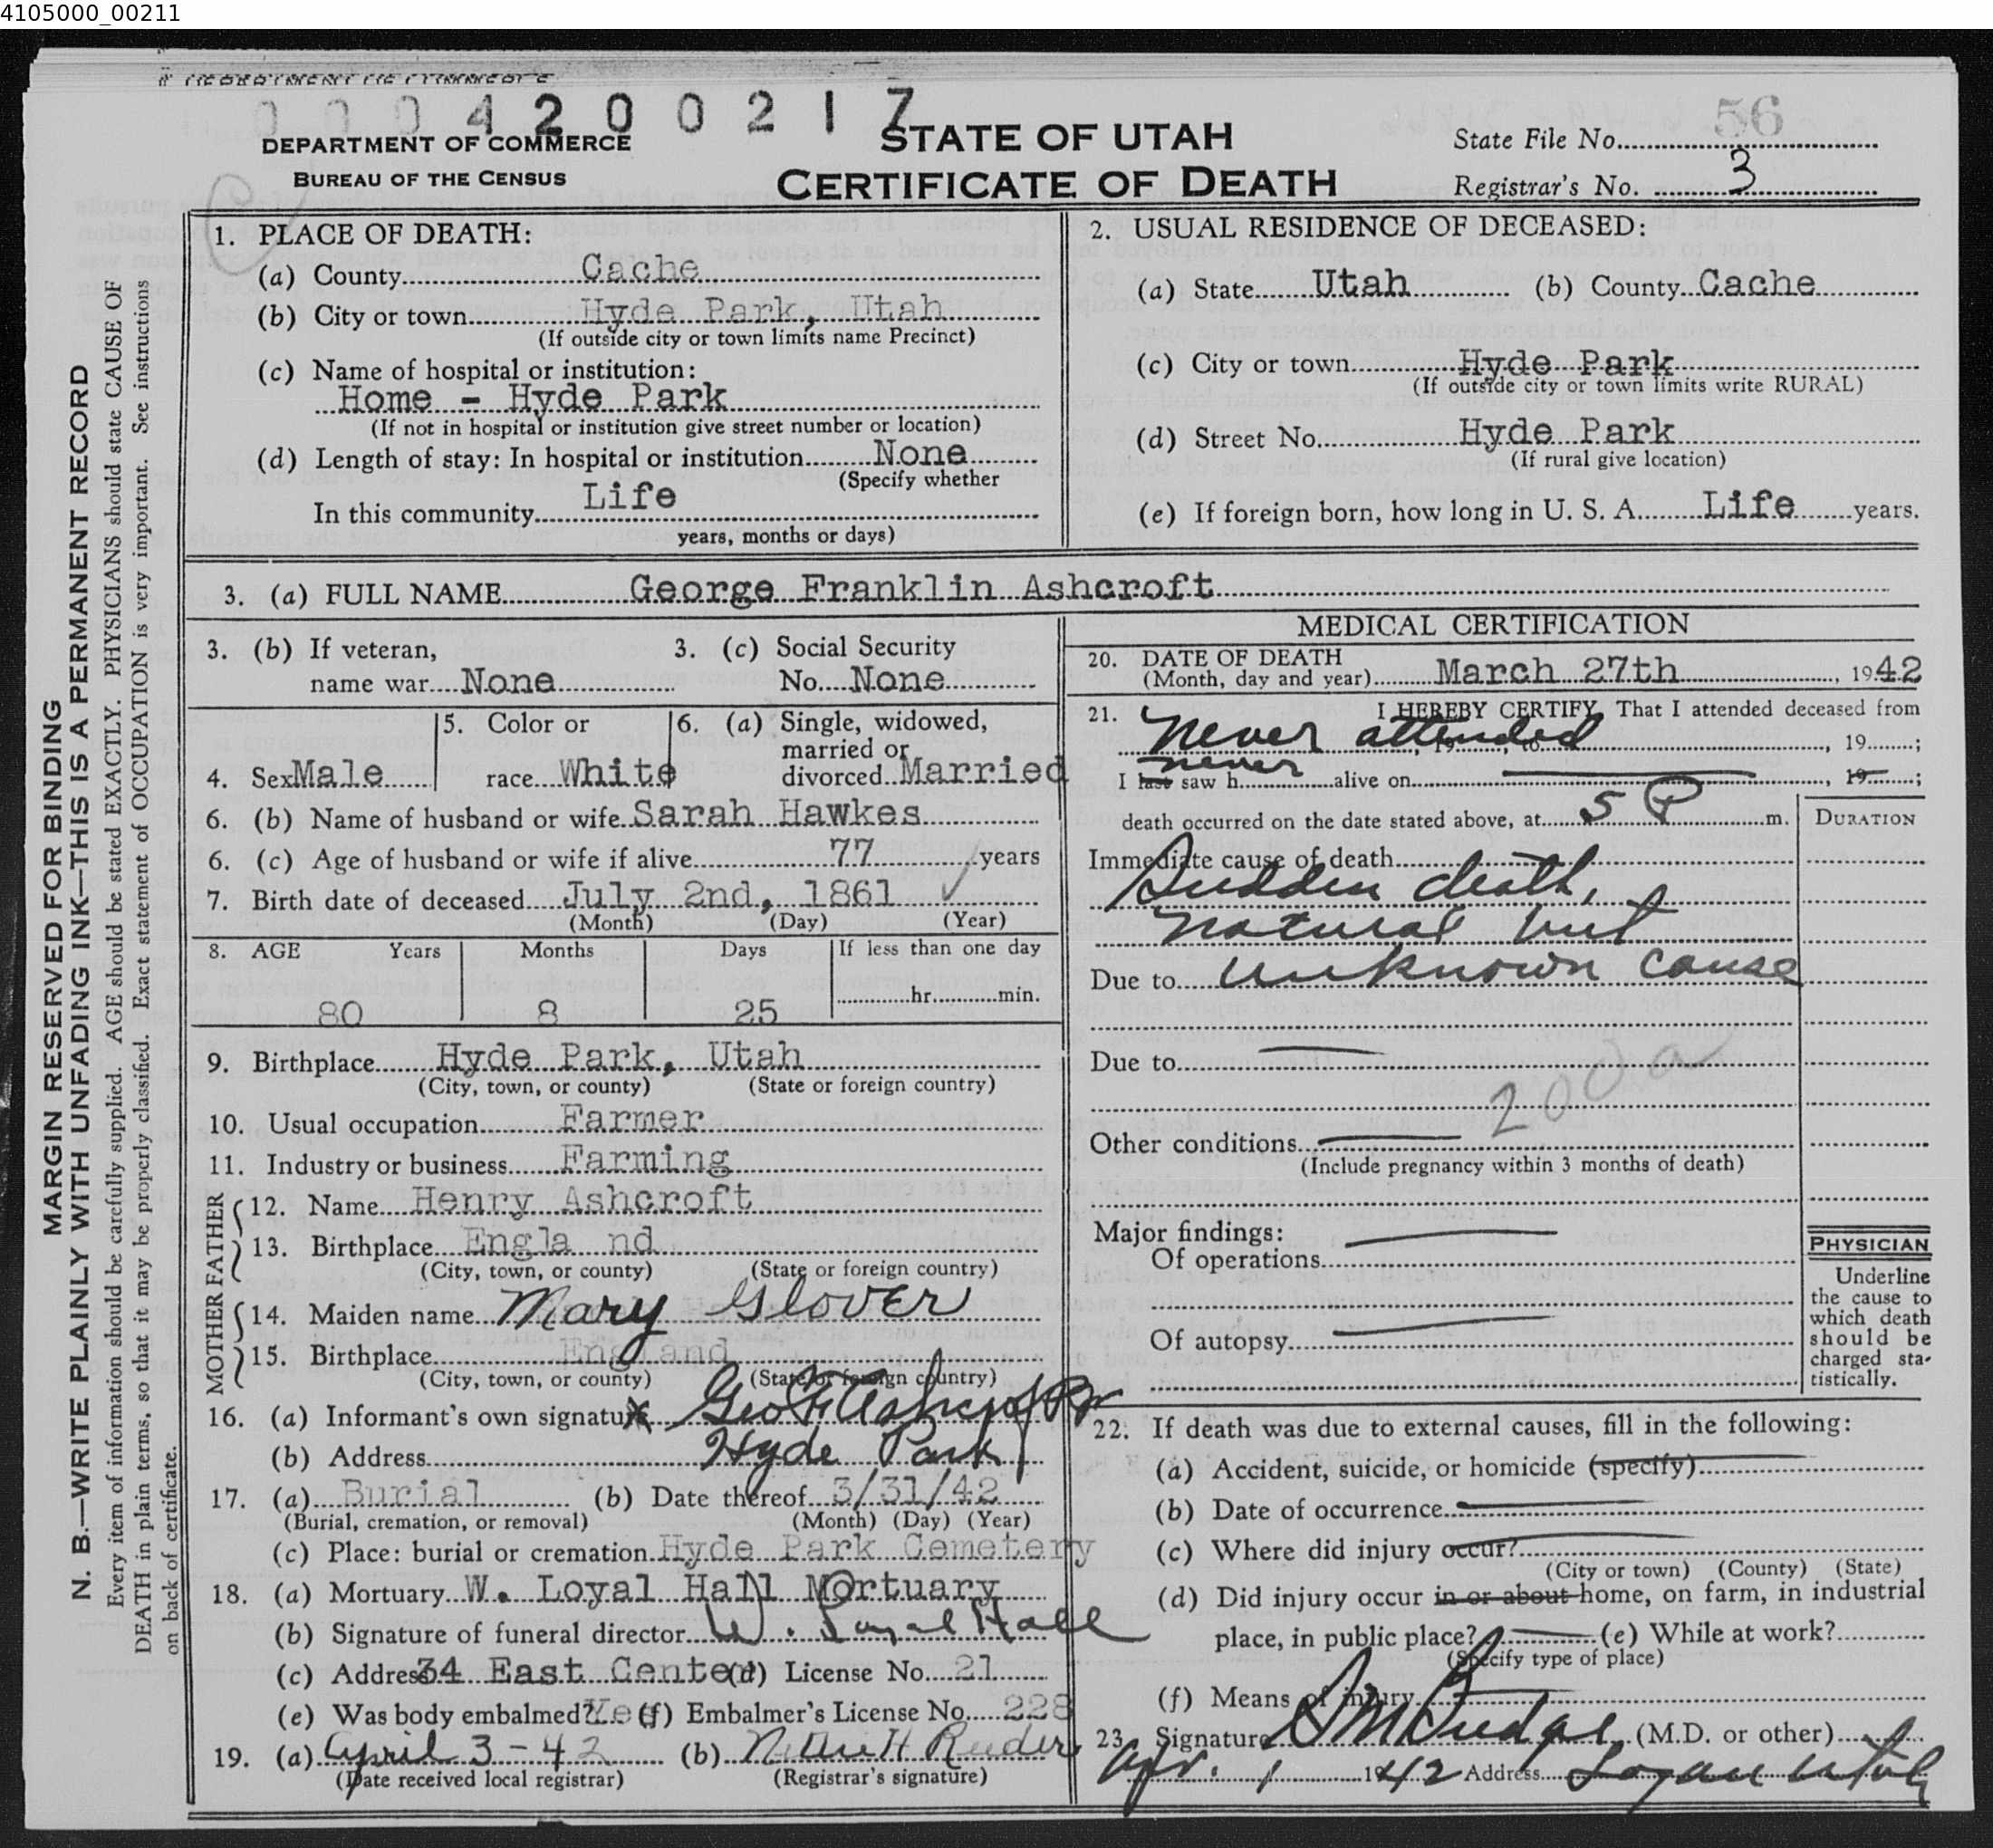 4105000_00211
0 0 0 4 2 0 0 2 1 7
DEPARTMENT OF COMMERCE
BUREAU OF THE CENSUS
STATE OF UTAH
CERTIFICATE OF DEATH
State File No. 56
Registrar's No. 3
MARGIN RESERVED FOR BINDING
N. B.—WRITE PLAINLY WITH UNFADING INK—THIS IS A PERMANENT RECORD
Every item of information should be carefully supplied. AGE should be stated EXACTLY. PHYSICIANS should state CAUSE OF
DEATH in plain terms, so that it may be properly classified. Exact statement of OCCUPATION is very important. See instructions
on back of certificate.
1. PLACE OF DEATH:
(a) County Cache
(b) City or town Hyde Park, Utah
(If outside city or town limits name Precinct)
(c) Name of hospital or institution:
Home - Hyde Park
(If not in hospital or institution give street number or location)
(d) Length of stay: In hospital or institution None
(Specify whether
In this community Life
years, months or days)
2. USUAL RESIDENCE OF DECEASED:
(a) State Utah (b) County Cache
(c) City or town Hyde Park
(If outside city or town limits write RURAL)
(d) Street No. Hyde Park
(If rural give location)
(e) If foreign born, how long in U. S. A. Life years.
3. (a) FULL NAME George Franklin Ashcroft
3. (b) If veteran, 3. (c) Social Security
name war None No. None
5. Color or 6. (a) Single, widowed,
married or
4. Sex Male race White divorced Married
6. (b) Name of husband or wife Sarah Hawkes
6. (c) Age of husband or wife if alive 77 years
7. Birth date of deceased July 2nd, 1861
(Month) (Day) (Year)
8. AGE Years Months Days If less than one day
80 8 25 hr. min.
9. Birthplace Hyde Park, Utah
(City, town, or county) (State or foreign country)
10. Usual occupation Farmer
11. Industry or business Farming
FATHER
12. Name Henry Ashcroft
13. Birthplace Engla nd
(City, town, or county) (State or foreign country)
MOTHER
14. Maiden name Mary Glover
15. Birthplace England
(City, town, or county) (State or foreign country)
16. (a) Informant's own signature X Geo F Ashcroft Jr
(b) Address Hyde Park
17. (a) Burial (b) Date thereof 3/31/42
(Burial, cremation, or removal) (Month) (Day) (Year)
(c) Place: burial or cremation Hyde Park Cemetery
18. (a) Mortuary W. Loyal Hall Mortuary
(b) Signature of funeral director W. Loyal Hall
(c) Address 34 East Center (d) License No. 21
(e) Was body embalmed? Yes (f) Embalmer's License No. 228
19. (a) April 3-42 (b) H
(Date received local registrar) (Registrar's signature)
MEDICAL CERTIFICATION
20. DATE OF DEATH
(Month, day and year) March 27th, 1942
21. I HEREBY CERTIFY, That I attended deceased from
Never attended, 19, to, 19;
never
I last saw h alive on, 19;
death occurred on the date stated above, at 5 P m.
DURATION
Immediate cause of death
Sudden death,
natural but
Due to unknown cause
Due to
200 a
Other conditions
(Include pregnancy within 3 months of death)
Major findings:
Of operations
Of autopsy
PHYSICIAN
Underline
the cause to
which death
should be
charged sta-
tistically.
22. If death was due to external causes, fill in the following:
(a) Accident, suicide, or homicide (specify)
(b) Date of occurrence
(c) Where did injury occur?
(City or town) (County) (State)
(d) Did injury occur in or about home, on farm, in industrial
place, in public place? (e) While at work?
(Specify type of place)
(f) Means of injury
23. Signature Budge (M.D. or other)
Apr. 1 1942 Address Logan Utah